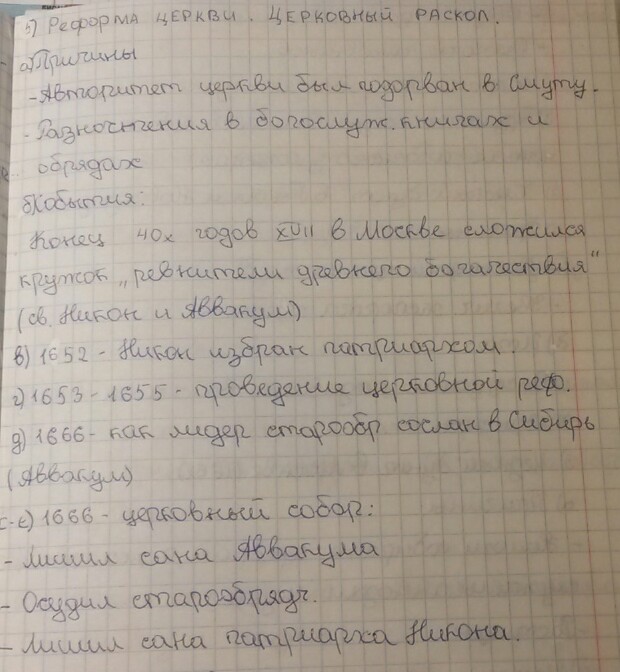 5) Реформа церкви. Церковный раскол.
а) Причины
- Авторитет церкви был подорван в Смуту.
- Разночтения в богослуж. книгах и
обрядах
б) События:
Конец 40х годов XVII в Москве сложился
кружок „ревнители древнего богачествия"
(св. Никон и Аввакум)
в) 1652 - Никон избран патриархом.
г) 1653 - 1655 - проведение церковной реф.
д) 1666 - как лидер старообр сослан в Сибирь
(Аввакум)
е) 1666 - церковный собор:
- Лишил сана Аввакума
- Осудил старообрядч.
- Лишил сана патриарха Никона.